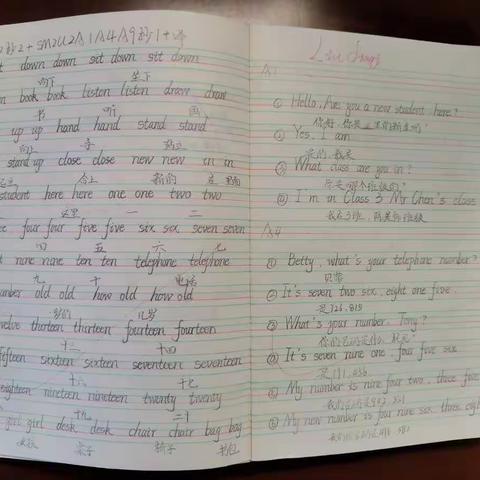 + SM2U2A1A4A9
down down sit down sit down
向下 坐下
book book listen listen draw draw
书 听 画
up up hand hand stand stand
向上 手 站立
stand up close close new new in in
合上 新的
student here here one one two two
这里 一 二
four four five five six six seven seven
四 五 六 七
nine nine ten ten telephone telephone
九 十 电话
number old old how old how old
thirteen thirteen fourteen fourteen
十三 十四
fifteen sixteen sixteen seventeen seventeen
十六 十七
eighteen nineteen nineteen twenty twenty
十九 二十
girl girl desk desk chair chair bag bag
女孩 桌子 椅子 书包
A1
① Hello, Are you a new student here?
② Yes, I am
是的,我是
③ What class are you in?
你是哪个班级的?
④ I'm in Class 3 Mr Chen's class
A4
① Betty, what's your telephone number?
贝蒂
② It's seven two six, eight one five.
是726,815
③ What's your number, Tony?
④ It's seven nine one, four five six
⑤ My number is nine four two, three five
⑥ My new number is four nine six three eight